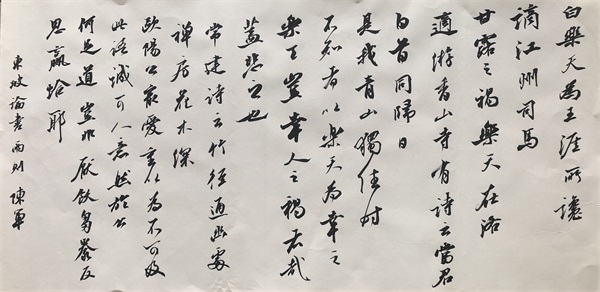 白樂天為王涯所讒
謫江州司馬
甘露之禍樂天在洛
適游香山寺有詩云當君
白首同歸日
是我青山獨往時
不知者以樂天為幸之
樂天豈幸人之禍者哉
蓋悲之也
常建詩云竹徑通幽處
禪房花木深
歐陽公最愛重以為不可及
此語誠可人意然於公
何足道豈非厭飫芻豢反
思蠃蛤耶
東坡論書兩則 陳軍